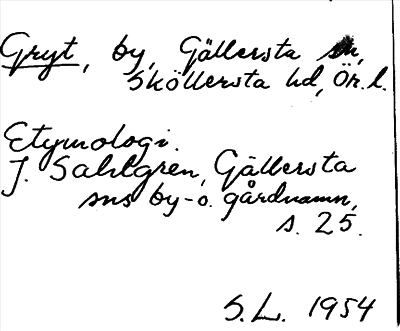 Gryt, by, Gällersta sn,
Sköllersta hd, Ör. l.
Etymologi.
J. Sahlgren, Gällersta
sns by- o. gårdnamn,
s. 25.
S.L. 1954